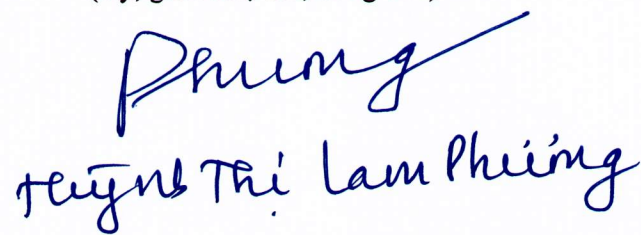 Phương
Huỳnh Thị Lam Phương